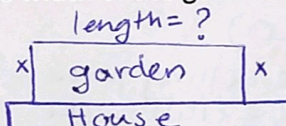 length = ?
x garden x
House